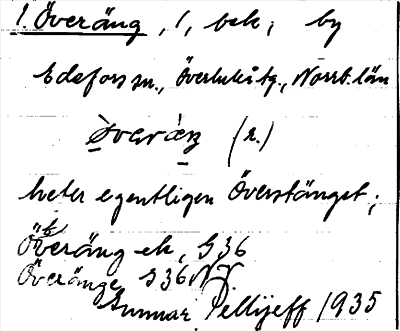 1. Överäng, 1, bek, by
Edefors sn., Överluleå tg., Norrb. län
(2.)
heter egentligen Överstänget;
Överäng ek, S 36
Överänge S 36
Gunnar Pellijeff 1935